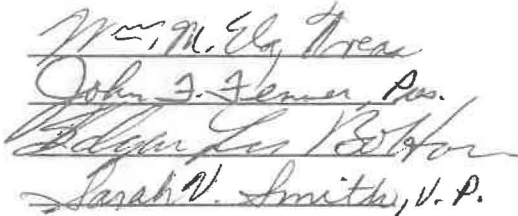 Wm. M. Ely, Treas
John F. Fenner, Pres.
Edgar Lee Bolton
Sarah V. Smith, V. P.